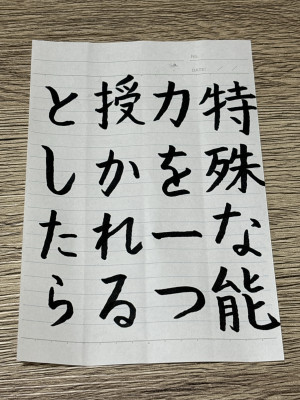 特殊な能
力を一つ
授かれる
としたら